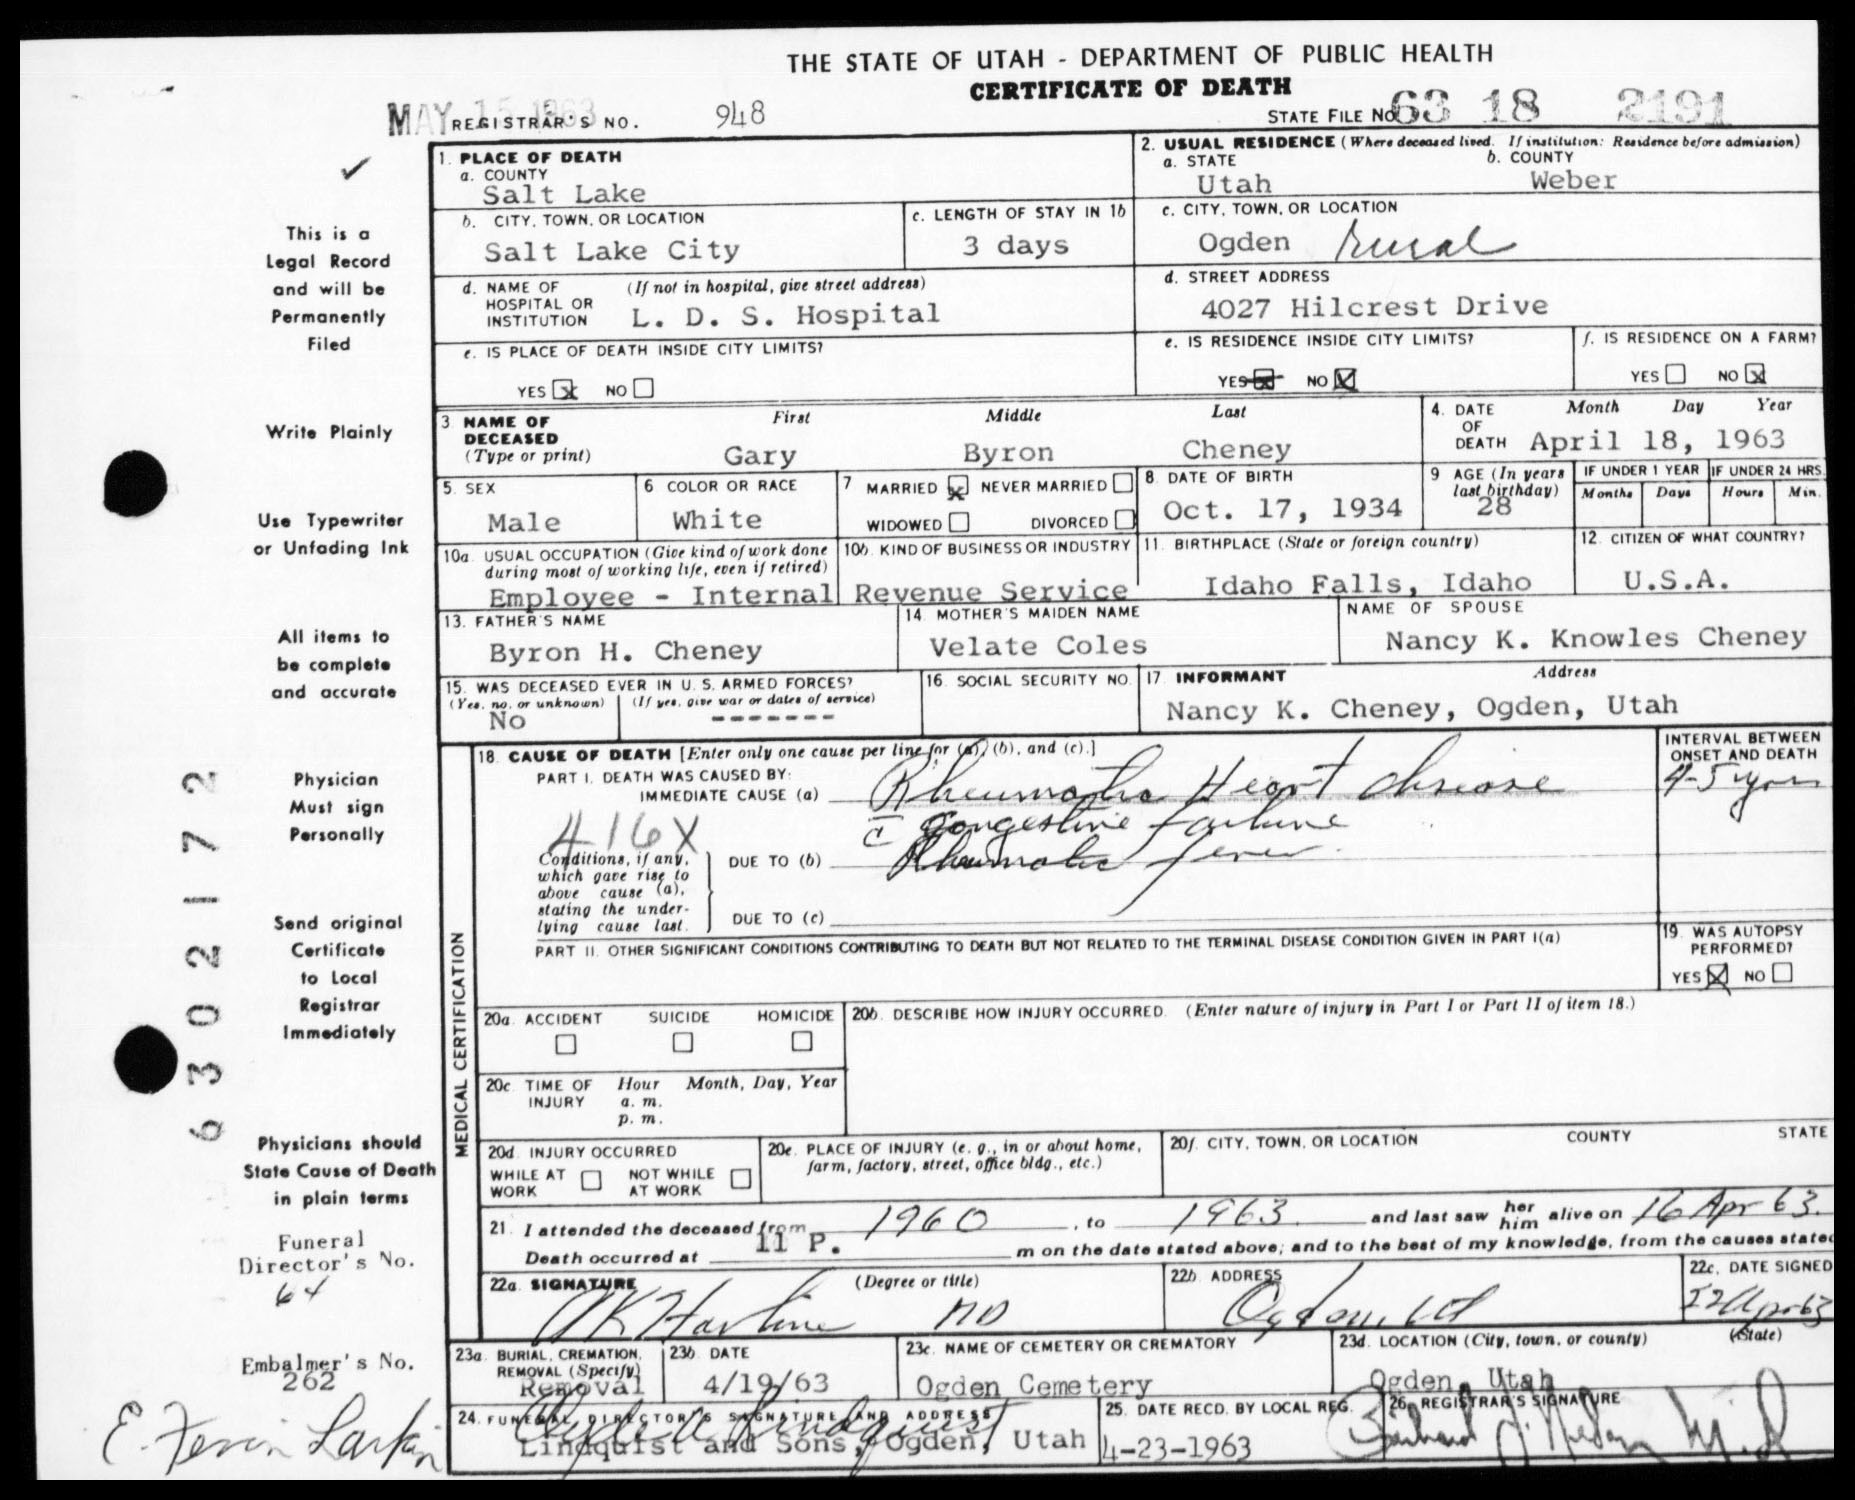 THE STATE OF UTAH - DEPARTMENT OF PUBLIC HEALTH
CERTIFICATE OF DEATH
MAY 15 1963
REGISTRAR'S NO. 948
STATE FILE NO. 63 18 2191
This is a
Legal Record
and will be
Permanently
Filed
Write Plainly
Use Typewriter
or Unfading Ink
All items to
be complete
and accurate
Physician
Must sign
Personally
Send original
Certificate
to Local
Registrar
Immediately
Physicians should
State Cause of Death
in plain terms
Funeral
Director's No.
64
Embalmer's No.
262
E. Fenin Larkin
6302172
1. PLACE OF DEATH
a. COUNTY
Salt Lake
b. CITY, TOWN, OR LOCATION
Salt Lake City
c. LENGTH OF STAY IN 1b
3 days
d. NAME OF HOSPITAL OR INSTITUTION (If not in hospital, give street address)
L. D. S. Hospital
e. IS PLACE OF DEATH INSIDE CITY LIMITS?
YES x NO
2. USUAL RESIDENCE (Where deceased lived. If institution: Residence before admission)
a. STATE
Utah
b. COUNTY
Weber
c. CITY, TOWN, OR LOCATION
Ogden rural
d. STREET ADDRESS
4027 Hilcrest Drive
e. IS RESIDENCE INSIDE CITY LIMITS?
YES x NO
f. IS RESIDENCE ON A FARM?
YES NO x
3 NAME OF DECEASED (Type or print)
First Middle Last
Gary Byron Cheney
4. DATE OF DEATH
Month Day Year
April 18, 1963
5. SEX
Male
6 COLOR OR RACE
White
7 MARRIED x NEVER MARRIED
WIDOWED DIVORCED
8. DATE OF BIRTH
Oct. 17, 1934
9 AGE (In years last birthday)
28
IF UNDER 1 YEAR
Months Days
IF UNDER 24 HRS.
Hours Min.
10a. USUAL OCCUPATION (Give kind of work done during most of working life, even if retired)
10b. KIND OF BUSINESS OR INDUSTRY
Employee - Internal Revenue Service
11. BIRTHPLACE (State or foreign country)
Idaho Falls, Idaho
12. CITIZEN OF WHAT COUNTRY?
U.S.A.
13. FATHER'S NAME
Byron H. Cheney
14. MOTHER'S MAIDEN NAME
Velate Coles
NAME OF SPOUSE
Nancy K. Knowles Cheney
15. WAS DECEASED EVER IN U. S. ARMED FORCES?
(Yes, no, or unknown) (If yes, give war or dates of service)
No -------
16. SOCIAL SECURITY NO.
17. INFORMANT Address
Nancy K. Cheney, Ogden, Utah
MEDICAL CERTIFICATION
18. CAUSE OF DEATH [Enter only one cause per line for (a), (b), and (c).]
PART I. DEATH WAS CAUSED BY:
IMMEDIATE CAUSE (a) Rheumatic Heart disease
c̄ congestive failure
416X
Conditions, if any, which gave rise to above cause (a), stating the underlying cause last.
DUE TO (b) Rheumatic fever
DUE TO (c)
INTERVAL BETWEEN ONSET AND DEATH
4-5 years
PART II. OTHER SIGNIFICANT CONDITIONS CONTRIBUTING TO DEATH BUT NOT RELATED TO THE TERMINAL DISEASE CONDITION GIVEN IN PART I(a)
19. WAS AUTOPSY PERFORMED?
YES x NO
20a. ACCIDENT SUICIDE HOMICIDE
20b. DESCRIBE HOW INJURY OCCURRED. (Enter nature of injury in Part I or Part II of item 18.)
20c. TIME OF INJURY Hour Month, Day, Year
a. m.
p. m.
20d. INJURY OCCURRED
WHILE AT WORK NOT WHILE AT WORK
20e. PLACE OF INJURY (e. g., in or about home, farm, factory, street, office bldg., etc.)
20f. CITY, TOWN, OR LOCATION COUNTY STATE
21. I attended the deceased from 1960, to 1963 and last saw her him alive on 16 Apr 63.
Death occurred at 11 P. m on the date stated above; and to the best of my knowledge, from the causes stated
22a. SIGNATURE (Degree or title)
MD
22b. ADDRESS
Ogden, Ut
22c. DATE SIGNED
22 Apr 63
23a. BURIAL, CREMATION, REMOVAL (Specify)
Removal
23b. DATE
4/19/63
23c. NAME OF CEMETERY OR CREMATORY
Ogden Cemetery
23d. LOCATION (City, town, or county) (State)
Ogden, Utah
24. FUNERAL DIRECTOR'S SIGNATURE AND ADDRESS
Clyde A Lindquist
Lindquist and Sons, Ogden, Utah
25. DATE RECD. BY LOCAL REG.
4-23-1963
26. REGISTRAR'S SIGNATURE